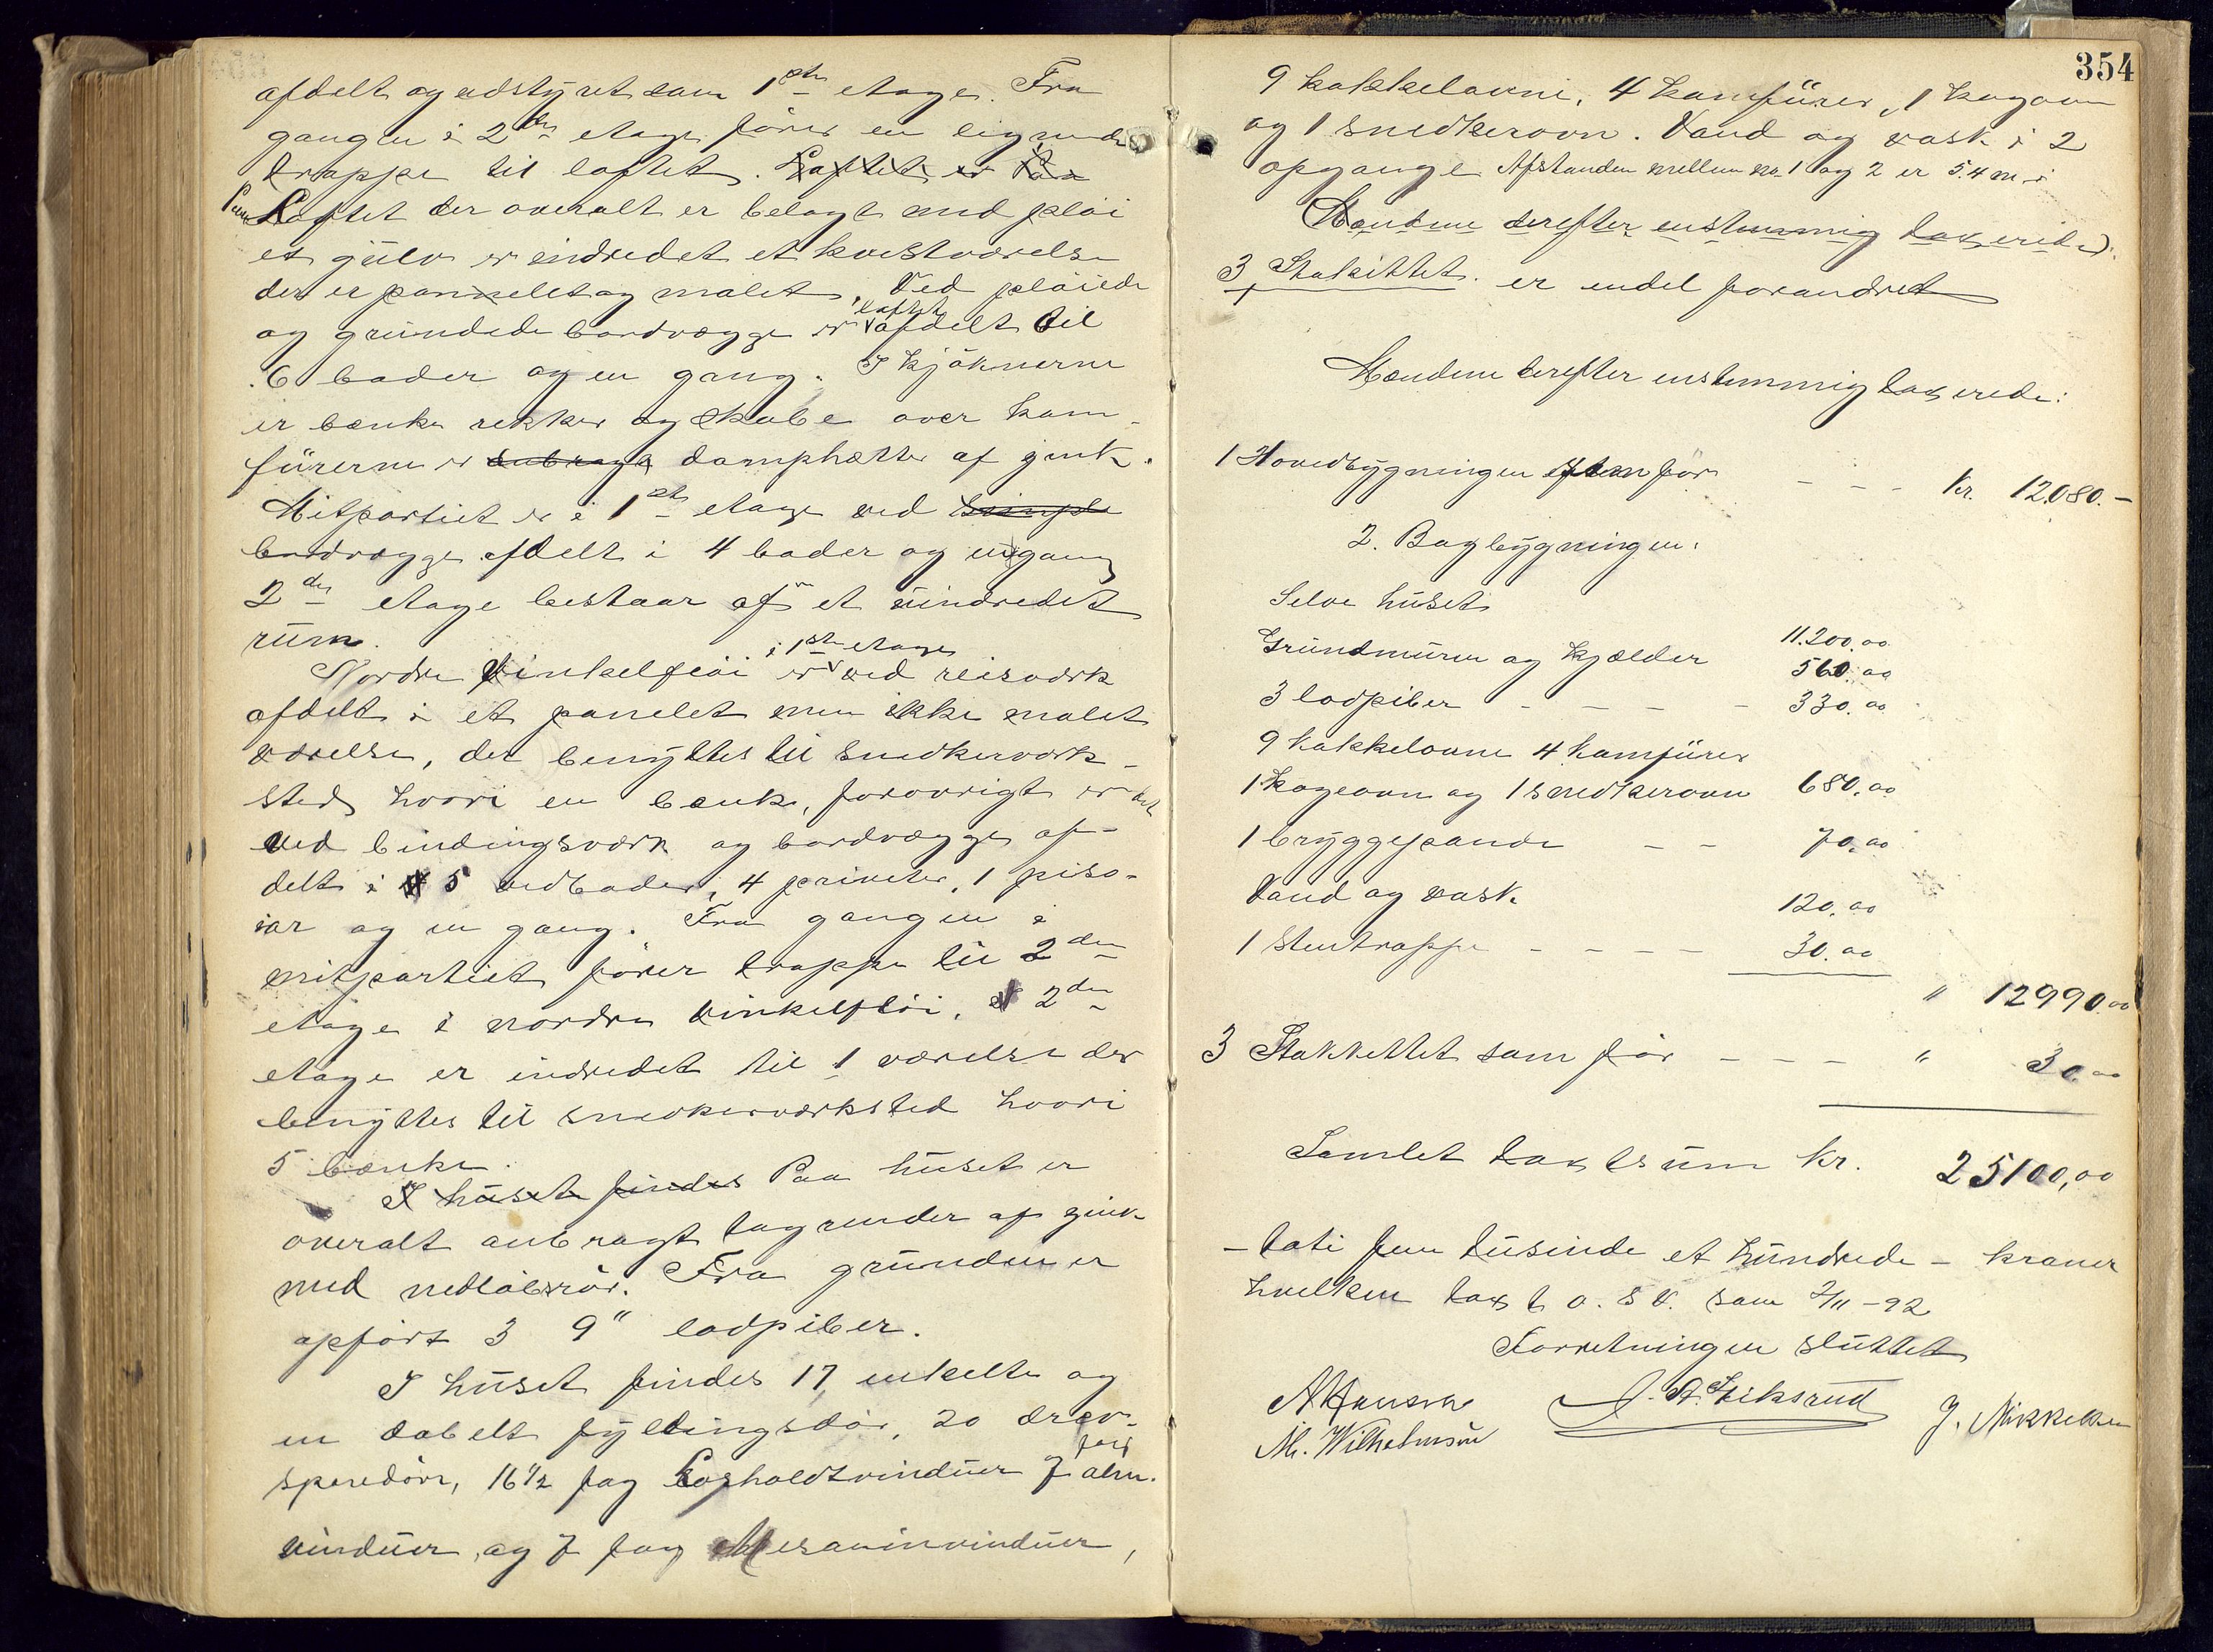 afdelt og udstyret som 1ste etage. Fra
gangen i 2den etage fører en lignende
trappe til loftet. Loftet er Paa
Paa Loftet der overalt er belagt med pløi
et gulv er indredet et kvistværelse
der er pannelet og malet. Ved pløiede
og grundede bordvægge er loftet afdelt til
6 boder og en gang. I kjøknerne
er bænke rekker og skabe over kom-
fürerne er anbragt damphætte af zink.
Mitpartiet er i 1ste etage ved simple
bordvægge afdelt i 4 boder og en gang
2den etage bestaar af et uindredet
rum.
Nordre vinkelfløi er i 1ste etage ved reisværk
afdelt i et panelet men ikke malet
værelse, der benyttes til snedkerværk-
sted hvori en bænk, forøvrigt er det
ved bindingsværk og bordvægge af-
delt i 5 vedboder, 4 priveter, 1 piso-
ar og en gang. Fra gangen i
mitpartiet fører trappe til 2den
etage i nordre vinkelfløi. 2den
etage er indredet til 1 værelse der
benyttes til snedkerværksted hvori
5 bænke.
I huset findes Paa huset er
overalt anbragt tagrender af zink
med nedløbsrør. Fra grunden er
opført 3 9" lodpiber.
I huset findes 17 enkelte og
en dobelt fyldingsdør, 20 drev-
speredøre, 16 1/2 fag Losholdtvinduer 7 fag alm.
vinduer, og 7 fag Mesaninvinduer,
354
9 kakkelovne, 4 komfürer, 1 kogeovn
og 1 snedkerovn. Vand og vask i 2
opgange Afstanden mellem no. 1 og 2 er 5.4 m.
Mændene derefter enstemmig taxerede:
3, Stakittet. er endel forandret
Mændene derefter enstemmig taxerede:
1 Hovedbygningen som før - - - Kr. 12080.-
2. Bagbygningen:
Selve huset 11.200.00
Grundmuren og kjælder 560.00
3 lodpiber - - - - 330.00
9 kakkelovne 4 komfürer
1 kogeovn og 1 snedkerovn 680.00
1 bryggepande - - 70.00
Vand og vask 120.00
1 stentrappe - - - - 30.00
" 12990.00
3 Stakkettet som før - - - " 30.00
Samlet taxtsum Kr. 25100,00
- toti fem tusinde et hundrede - kroner
hvilken taxt o. s. v. som 2/11-92
Forretningen sluttet
A Hansen A. Eiksrud J. Mikkelsen
M. Wilhelmsen